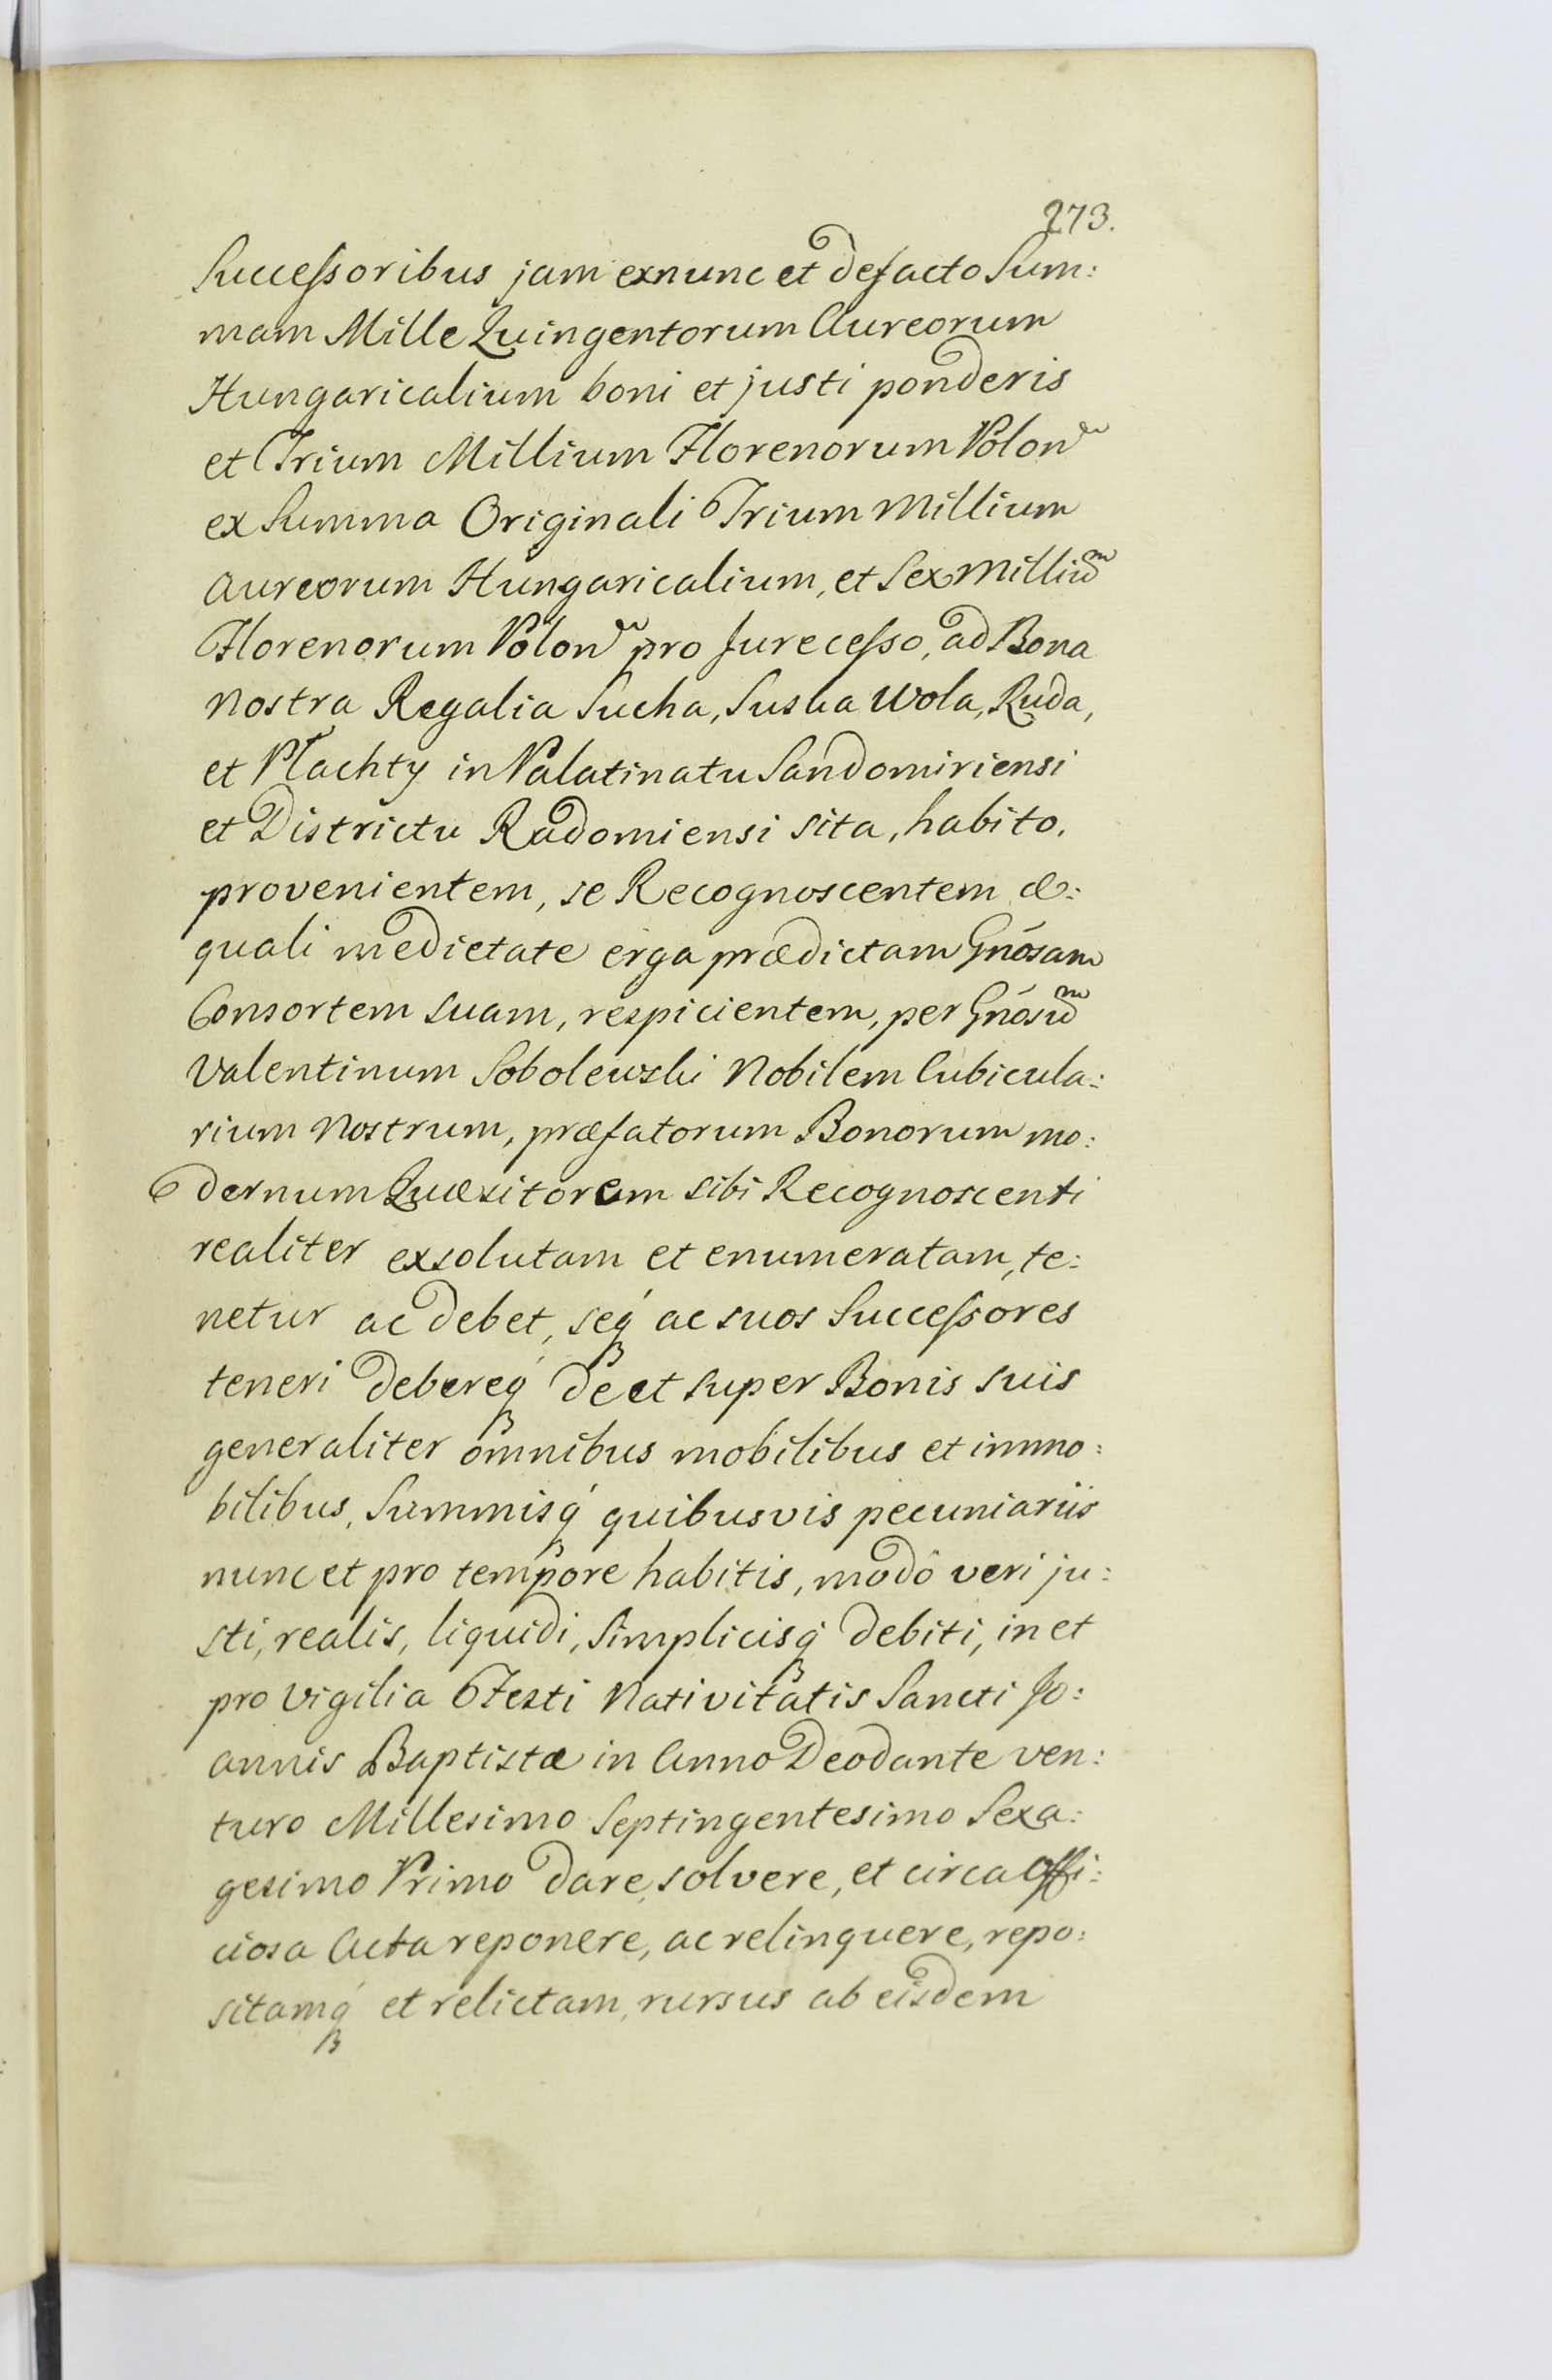 273.
Successoribus jam exnunc et defacto Sum:
mam Mille Quingentorum Aureorum
Hungaricalium boni et justi ponderis
et Trium Millium Florenorum Polon
ex Summa Originali Trium Millium
Aureorum Hungaricalium, et Sex Milliũ
Florenorum Polon pro Jurecesso, ad Bona
Nostra Regalia Sucha, Suska Wola, Ruda,
et Płachty in Palatinatu Sandomiriensi
et Districtu Radomiensi sita, habito,
provenientem, se Recognoscentem æ:
quali medietate erga prædictam Gnósam
Consortem suam, respicientem, per Gnósũ
Valentinum Sobolewski Nobilem Cubicula:
rium Nostrum, præfatorum Bonorum mo:
dernum Quæsitorem sibi Recognoscenti
realiter exsolutam et enumeratam, te:
netur ac debet, seq́ ac suos Successores
teneri debereq́ de et super Bonis suis
generaliter omnibus mobilibus et immo:
bilibus, Summisq́ quibusvis pecuniariis
nunc et pro tempore habitis, modô veri ju:
sti, realis, liquidi, Simplicisq́ debiti, in et
pro Vigilia Festi Nativitatis Sancti Jo:
annis Baptistæ in Anno Deodante ven:
turo Millesimo Septingentesimo Sexa:
gesimo Primo dare, solvere, et circa Offi:
ciosa Acta reponere, ac relinquere, repo:
sitamq́ et relictam, rursus ab eisdem